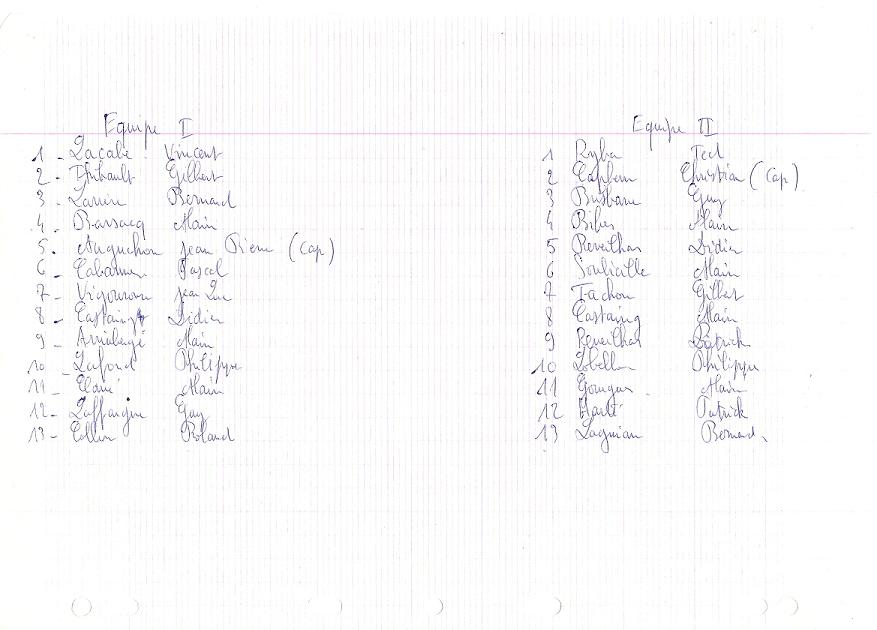 Equipe I
1 - Lacabe Vincent
2 - Thibault Gilbert
3 - Larrieu Bernard
4 - Barsacq Alain
5 - Auguchon Jean Pierre (Cap)
6 - Pascal
7 - Vigouroux Jean Luc
8 - Castaing Didier
9 - Alain
10 - Lafond Philippe
11 - Alain
12 - Laffargue Guy
13 - Roland
Equipe II
1 Ryba Ted
2 Capbern Christian (Cap)
3 Guy
4 Bibes Alain
5 Reveilhas Didier
6 Alain
7 Tachon Gilbert
8 Castaing Alain
9 Reveilhas Patrick
10 Philippe
11 Gourgues Alain
12 Patrick
13 Lagnian Bernard